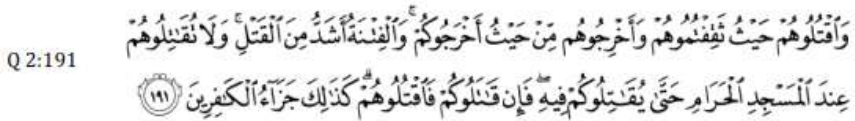 وَٱقْتُلُوهُمْ حَيْثُ ثَقِفْتُمُوهُمْ وَأَخْرِجُوهُم مِّنْ حَيْثُ أَخْرَجُوكُمْ ۚ وَٱلْفِتْنَةُ أَشَدُّ مِنَ ٱلْقَتْلِ ۚ وَلَا تُقَٰتِلُوهُمْ
Q 2:191
عِندَ ٱلْمَسْجِدِ ٱلْحَرَامِ حَتَّىٰ يُقَٰتِلُوكُمْ فِيهِ ۖ فَإِن قَٰتَلُوكُمْ فَٱقْتُلُوهُمْ ۗ كَذَٰلِكَ جَزَآءُ ٱلْكَٰفِرِينَ ١٩١